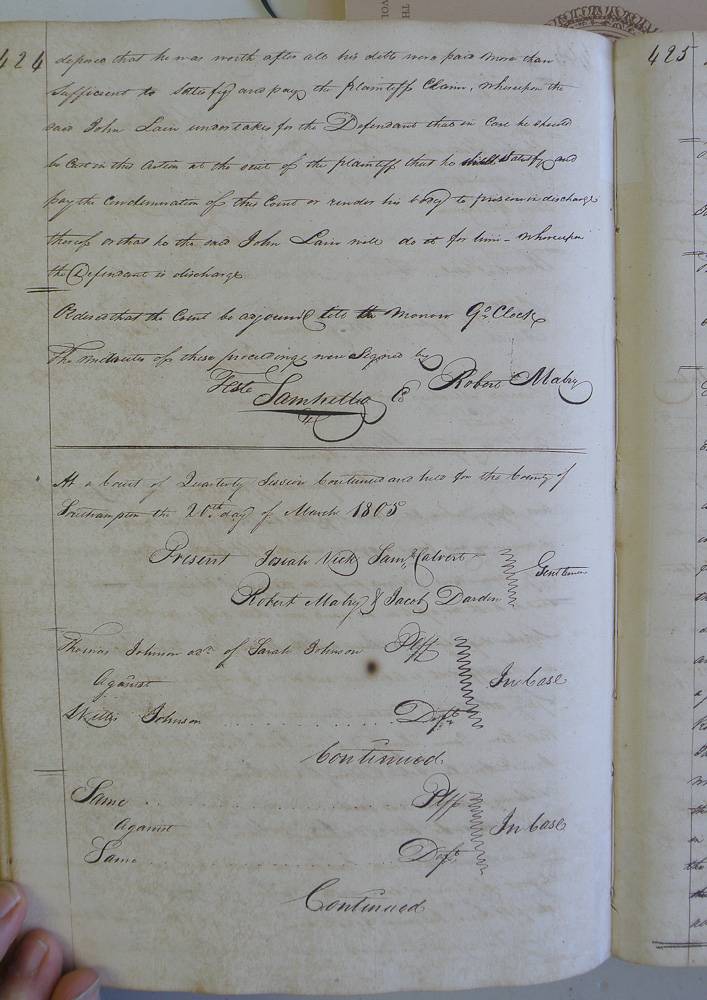 424
deposes that he was worth after all his debts were paid more than
Sufficient to Satisfy and pay the plaintiffs Claim, whereupon the
said John Lain undertakes for the Defendant that in Case he should
be Cast in this Action at the suit of the plaintiff that he will Satisfy and
pay the Condemnation of this Court or render his body to prison in discharge
thereof or that he the said John Lain will do it for him - whereupon
the Defendant is discharge
Ordered that the Court be adjourned till the Morrow 9 oClock
The minutes of these proceedings were Signed by
Teste Robert Mabry
At a Court of Quarterly Session Continued and held for the County of
Southampton the 20th day of March 1805
Present Josiah Vick Saml Calvert
Robert Mabry & Jacob Darden
Gentlemen
Thomas Johnson adr. of Sarah Johnson Plff
Against
In Case
Johnson Deft
Continued
Same Plff
Against
In Case
Same Deft
Continued
425